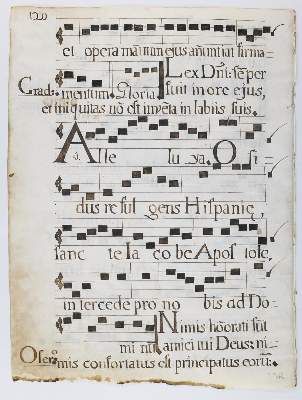 et opera manuum ejus añuntiat firma-
Grad: mentum. Gloria. Lex Dñi: sẽper
fuit in ore ejus,
et iniquitas nõ est invẽta in labiis suis.
Alle lu ya. O si-
dus reful gens Hispanię,
sanc te Ia co be Apos tole,
intercede pro no bis ad Do-
Nimis hõorati sũt
mi nũ. amici tui Deus: ni-
Ofero: mis confortatus est principatus eorũ: